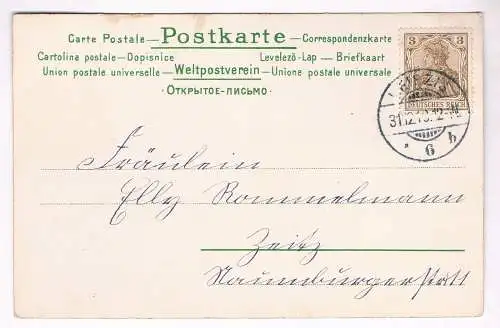 Carte Postale — Postkarte — Correspondenzkarte
Cartolina postale — Dopisnice Levelező-Lap — Briefkaart
Union postale universelle — Weltpostverein — Unione postale universale
· ОТКРЫТОЕ-ПИСЬМО ·
3 3
DEUTSCHES REICH
LEIPZIG
31.12.
* 6 b
Fräulein
Elly Rommelmann
Zeitz
Naumburgerstatt